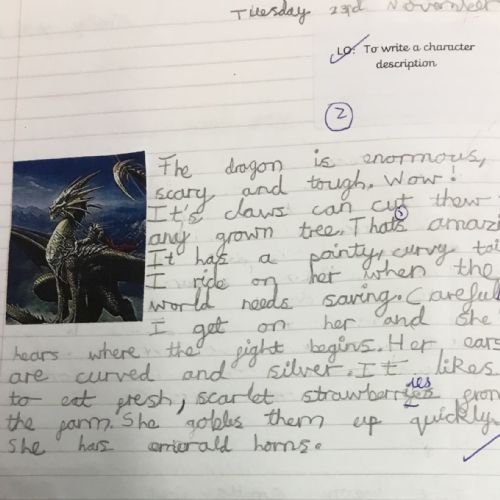 Tuesday 23rd November
LO: To write a character
description
2
The dragon is enormous,
scary and tough. Wow!
It's claws can cut threw
any grown tree. Thats amazi
It has a pointy, curvy tai
I ride on her when the
world needs saving. Careful
I get on her and she
hears where the fight begins. Her ears
are curved and silver. It likes
to eat fresh, scarlet strawberries from
the farm. She gobles them up quickly.
She has emerald horns.